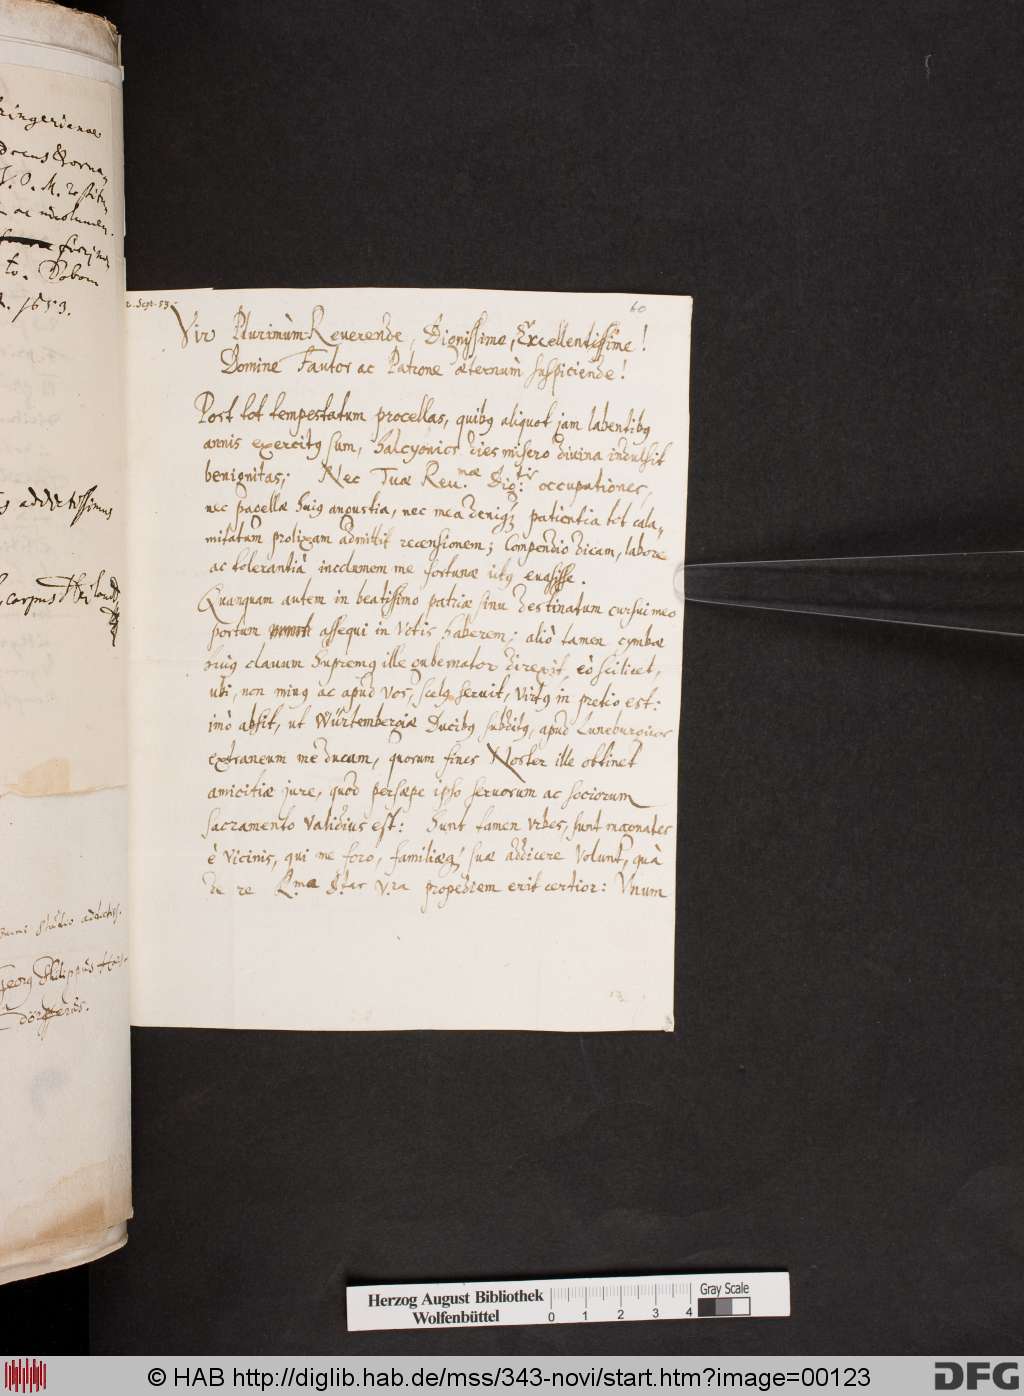 ringerianae
decus & orna,
V. O. M. restitu
ac incolumem.
to. Dabam
1653.
s addictissimus
Georg Philippus Hars
dörfferus.
2. Sept. 53.
60
Vir Plurimùm-Reverende, Dignissime, Excellentissime!
Domine Fautor ac Patrone æternùm suspiciende!
Post tot tempestatum procellas, quibg aliquot jam labentibg
annis exercitg sum, halcyonios dies misero divina indulsit
benignitas; Nec Tuæ Reu.mæ Dig.tis occupationes,
nec pagellæ huig angustia, nec mea deniq; patientia tot cala-
mitatum prolixam admittit recensionem; Compendio dicam, labore
ac tolerantiâ incolumem me fortunæ ictg evasisse.
Quanquam autem in beatissimo patriæ sinu destinatum cursui meo
portum assequi in votis haberem; aliò tamen cymbæ
huig clavum supremg ille gubernator direxit, eò scilicet,
ubi, non ming ac apud vos, scelg servit, virtg in pretio est:
imò absit, ut Würtembergiæ Ducibg subditg, apud Luneburgicos
extraneum me ducam, quorum fines Noster ille obtinet
amicitiæ jure, quod persæpe ipso servorum ac sociorum
sacramento validius est: Sunt tamen Urbes, sunt magnates
è vicinis, qui me foro, familiæq; suæ addicere volunt, quâ
de re R.ma D.tas V.ra propediem erit certior: Unum
Herzog August Bibliothek
Wolfenbüttel
0 1 2 3 4
Gray Scale
© HAB http://diglib.hab.de/mss/343-novi/start.htm?image=00123
DFG